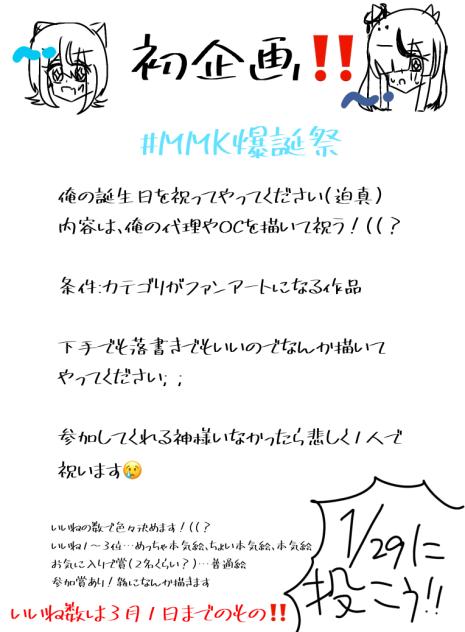 初企画‼️
#MMK爆誕祭
俺の誕生日を祝ってやってください(迫真)
内容は、俺の代理やOCを描いて祝う！((？
条件:カテゴリがファンアートになる作品
下手でも落書きでもいいのでなんか描いて
やってください; ;
参加してくれる神様いなかったら悲しく1人で
祝います😢
いいねの数で色々決めます！((？
いいね1〜3位…めっちゃ本気絵、ちょい本気絵、本気絵
お気に入りで賞(2名くらい？)…普通絵
参加賞あり！雑になんか描きます
いいね数は3月1日までのもの‼️
1/29に
投こう!!